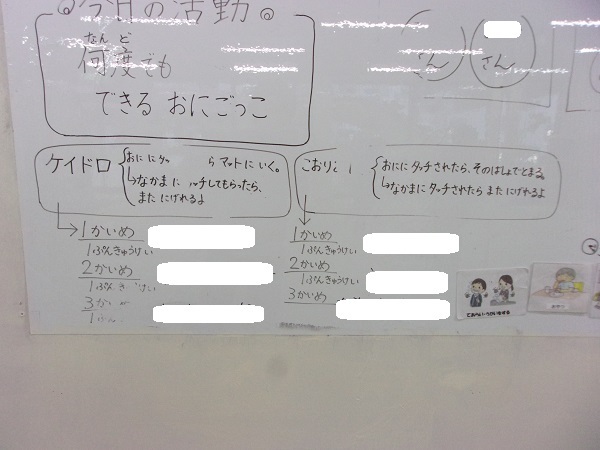 今日の活動。
なんど
何度でも
できる おにごっこ
さん
さん
ケイドロ
おに にタッ らマットにいく。
↳なかま に ッチしてもらったら、
また にげれるよ
こおり
おにに タッチされたら、そのばしょでとまる。
↳なかまに タッチされたら また にげれるよ
1かいめ
1ぷんきゅうけい
2かいめ
1ぷんきゅうけい
3かい
1ぷん
1かいめ
1ぷんきゅうけい
2かいめ
1ぷんきゅうけい
3かいめ